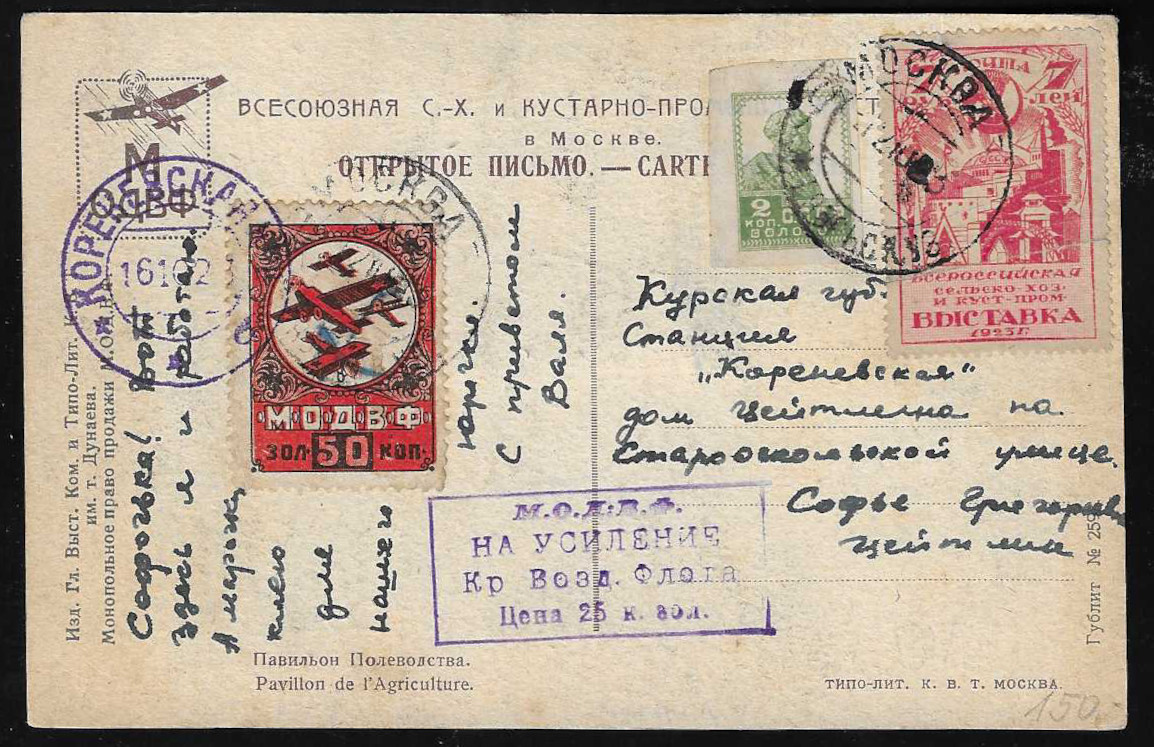 М
ОДВФ
ВСЕСОЮЗНАЯ С.-Х. и КУСТАРНО-ПРО
в Москве.
ОТКРЫТОЕ ПИСЬМО. — CARTE
2
КОП.
МОСКВА
7
ВСЕРОССИЙСКАЯ
СЕЛЬСКО-ХОЗ-
И КУСТ-ПРОМ-
ВЫСТАВКА
1923 Г.
КОРЕНЕВСКАЯ
МОСКВА
МОДВФ
ЗОЛ. 50 КОП.
Курская губ.
Станция
„Кореневская“
дом Цейтлина на
Старооскольской улице.
Софье Григорьевне
Цейтлин
Софочька! Вот
здесь я и работаю.
А марочку
клею
для
нашего
кружка.
С приветом
Валя.
М.О.Д.В.Ф.
НА УСИЛЕНИЕ
Кр Возд. Флота
Цена 25 к. зол.
Изд. Гл. Выст. Ком. и Типо-Лит. К
им. т. Дунаева.
Монопольное право продажи М.О.
Павильон Полеводства.
Pavillon de l'Agriculture.
ТИПО-ЛИТ. К. В. Т. МОСКВА.
Гублит № 259
150.-